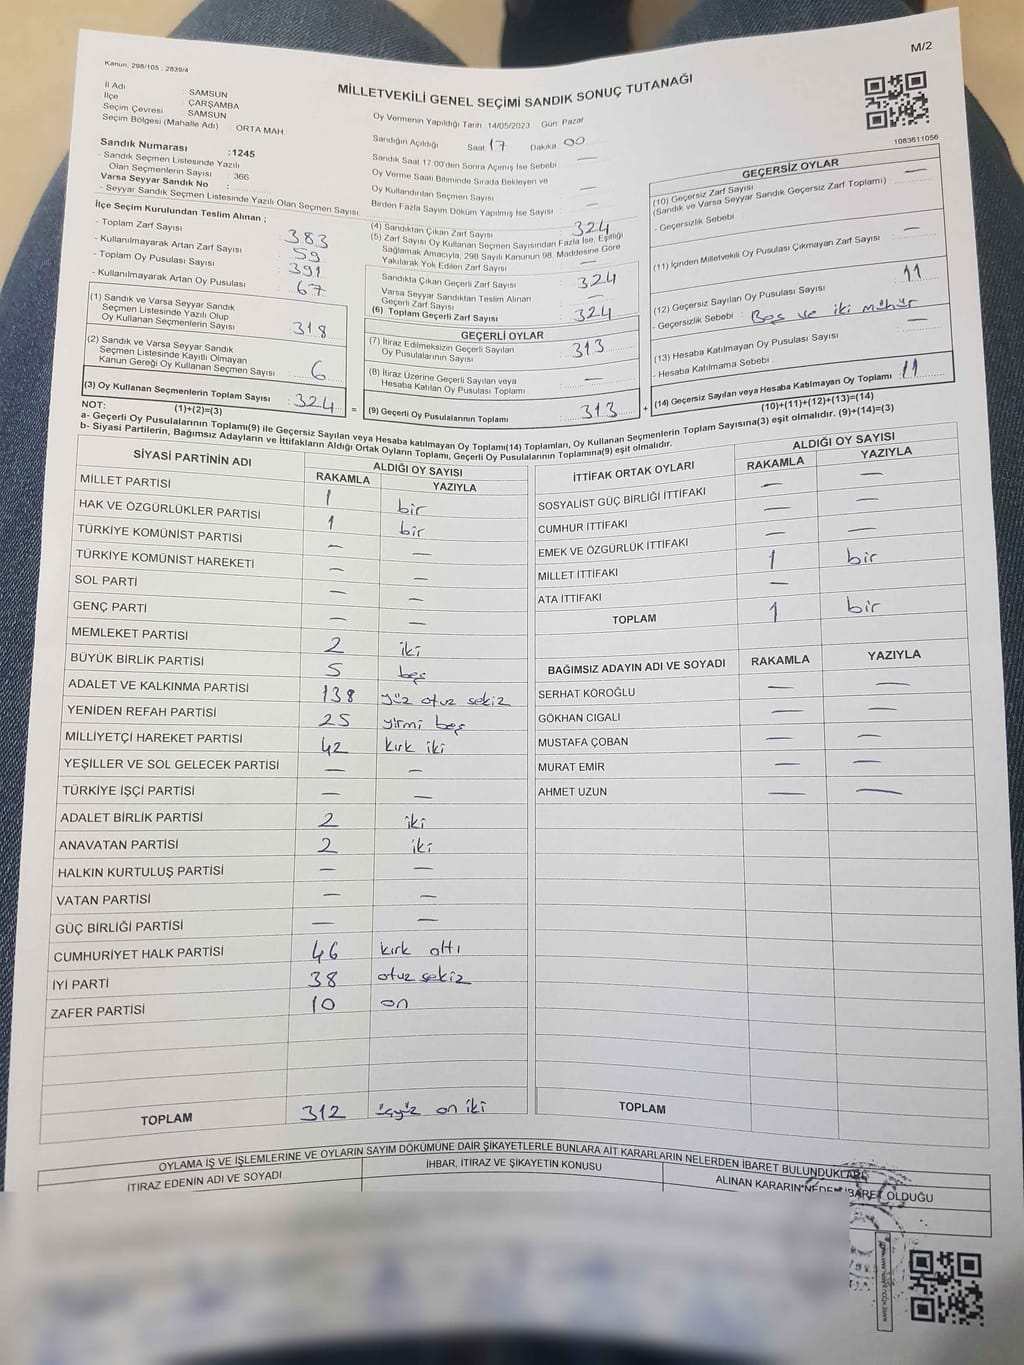 M/2
Kanun; 298/105 , 2839/4
MİLLETVEKİLİ GENEL SEÇİMİ SANDIK SONUÇ TUTANAĞI
İl Adı : SAMSUN
İlçe : ÇARŞAMBA
Seçim Çevresi : SAMSUN
Seçim Bölgesi (Mahalle Adı) ORTA MAH.
Sandık Numarası :1245
- Sandık Seçmen Listesinde Yazılı
Olan Seçmenlerin Sayısı : 366
Varsa Seyyar Sandık No :
- Seyyar Sandık Seçmen Listesinde Yazılı Olan Seçmen Sayısı:
İlçe Seçim Kurulundan Teslim Alınan ;
- Toplam Zarf Sayısı : 383
- Kullanılmayarak Artan Zarf Sayısı : 59
- Toplam Oy Pusulası Sayısı : 391
- Kullanılmayarak Artan Oy Pusulası : 67
(1) Sandık ve Varsa Seyyar Sandık
Seçmen Listesinde Yazılı Olup
Oy Kullanan Seçmenlerin Sayısı : 318
(2) Sandık ve Varsa Seyyar Sandık
Seçmen Listesinde Kayıtlı Olmayan
Kanun Gereği Oy Kullanan Seçmen Sayısı : 6
(3) Oy Kullanan Seçmenlerin Toplam Sayısı : 324 =
(1)+(2)=(3)
Oy Vermenin Yapıldığı Tarih :14/05/2023 Gün Pazar
Sandığın Açıldığı Saat 17 Dakika 00
Sandık Saat 17.00'den Sonra Açımış İse Sebebi : —
Oy Verme Saati Bitiminde Sırada Bekleyen ve
Oy Kullandırılan Seçmen Sayısı : —
Birden Fazla Sayım Döküm Yapılmış İse Sayısı : —
(4) Sandıktan Çıkan Zarf Sayısı : 324
(5) Zarf Sayısı Oy Kullanan Seçmen Sayısından Fazla İse, Eşitliği
Sağlamak Amacıyla, 298 Sayılı Kanunun 98. Maddesine Göre
Yakılarak Yok Edilen Zarf Sayısı : —
Sandıkta Çıkan Geçerli Zarf Sayısı : 324
Varsa Seyyar Sandıktan Teslim Alınan
Geçerli Zarf Sayısı : —
(6) Toplam Geçerli Zarf Sayısı : 324
GEÇERLİ OYLAR
(7) İtiraz Edilmeksizin Geçerli Sayılan
Oy Pusulalarının Sayısı : 313
(8) İtiraz Üzerine Geçerli Sayılan veya
Hesaba Katılan Oy Pusulası Toplamı : —
(9) Geçerli Oy Pusulalarının Toplamı : 313 +
1083611056
GEÇERSİZ OYLAR
(10) Geçersiz Zarf Sayısı : —
(Sandık ve Varsa Seyyar Sandık Geçersiz Zarf Toplamı)
- Geçersizlik Sebebi
(11) İçinden Milletvekili Oy Pusulası Çıkmayan Zarf Sayısı : —
(12) Geçersiz Sayılan Oy Pusulası Sayısı : 11
- Geçersizlik Sebebi : Boş ve iki mühür
(13) Hesaba Katılmayan Oy Pusulası Sayısı : —
- Hesaba Katılmama Sebebi
(14) Geçersiz Sayılan veya Hesaba Katılmayan Oy Toplamı : 11
(10)+(11)+(12)+(13)=(14)
NOT:
a- Geçerli Oy Pusulalarının Toplamı(9) ile Geçersiz Sayılan veya Hesaba katılmayan Oy Toplamı(14) Toplamları, Oy Kullanan Seçmenlerin Toplam Sayısına(3) eşit olmalıdır. (9)+(14)=(3)
b- Siyasi Partilerin, Bağımsız Adayların ve İttifakların Aldığı Ortak Oyların Toplamı, Geçerli Oy Pusulalarının Toplamına(9) eşit olmalıdır.
SİYASİ PARTİNİN ADI ALDIĞI OY SAYISI
RAKAMLA YAZIYLA
MİLLET PARTİSİ 1 bir
HAK VE ÖZGÜRLÜKLER PARTİSİ 1 bir
TÜRKİYE KOMÜNİST PARTİSİ — —
TÜRKİYE KOMÜNİST HAREKETİ — —
SOL PARTİ — —
GENÇ PARTİ — —
MEMLEKET PARTİSİ 2 iki
BÜYÜK BİRLİK PARTİSİ 5 beş
ADALET VE KALKINMA PARTİSİ 138 yüz otuz sekiz
YENİDEN REFAH PARTİSİ 25 yirmi beş
MİLLİYETÇİ HAREKET PARTİSİ 42 kırk iki
YEŞİLLER VE SOL GELECEK PARTİSİ — —
TÜRKİYE İŞÇİ PARTİSİ — —
ADALET BİRLİK PARTİSİ 2 iki
ANAVATAN PARTİSİ 2 iki
HALKIN KURTULUŞ PARTİSİ — —
VATAN PARTİSİ — —
GÜÇ BİRLİĞİ PARTİSİ — —
CUMHURİYET HALK PARTİSİ 46 kırk altı
İYİ PARTİ 38 otuz sekiz
ZAFER PARTİSİ 10 on
TOPLAM 312 üçyüz on iki
İTTİFAK ORTAK OYLARI ALDIĞI OY SAYISI
RAKAMLA YAZIYLA
SOSYALIST GÜÇ BİRLİĞİ İTTİFAKI — —
CUMHUR İTTİFAKI — —
EMEK VE ÖZGÜRLÜK İTTİFAKI — —
MİLLET İTTİFAKI 1 bir
ATA İTTİFAKI —
TOPLAM 1 bir
BAĞIMSIZ ADAYIN ADI VE SOYADI RAKAMLA YAZIYLA
SERHAT KÖROĞLU — —
GÖKHAN CIGALI — —
MUSTAFA ÇOBAN — —
MURAT EMİR — —
AHMET UZUN — —
TOPLAM
OYLAMA İŞ VE İŞLEMLERİNE VE OYLARIN SAYIM DÖKÜMÜNE DAİR ŞİKAYETLERLE BUNLARA AİT KARARLARIN NELERDEN İBARET BULUNDUKLARI
İTİRAZ EDENİN ADI VE SOYADI İHBAR, İTİRAZ VE ŞİKAYETİN KONUSU ALINAN KARARIN NEDEN İBARET OLDUĞU